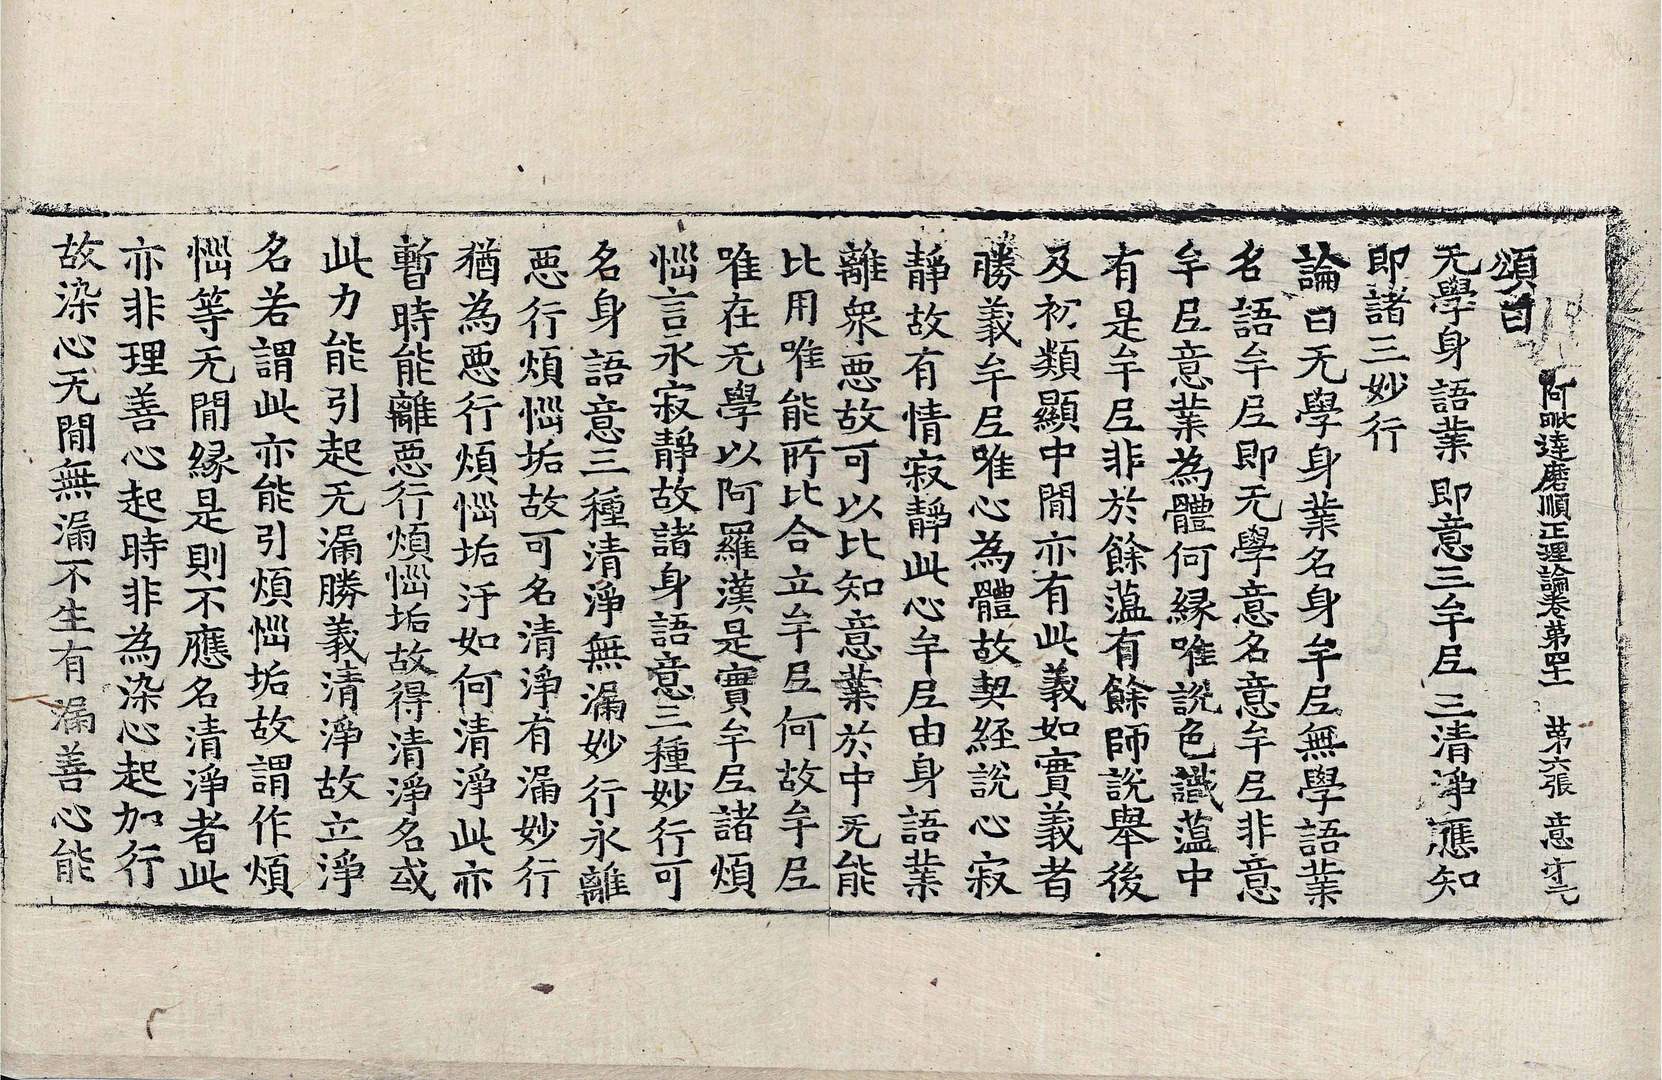 阿毗達磨順正理論卷第四十一 第六張 意
頌曰
无學身語業 即意三牟𡰱 三清淨應知
即諸三妙行
論曰无學身業名身牟𡰱無學語業
名語牟𡰱即无學意名意牟𡰱非意
牟𡰱意業為體何緣唯說色識蘊中
有是牟𡰱非於餘蘊有餘師說舉後
及初類顯中間亦有此義如實義者
勝義牟𡰱唯心為體故契經說心寂
靜故有情寂靜此心牟𡰱由身語業
離衆惡故可以比知意業於中无能
比用唯能所比合立牟𡰱何故牟𡰱
唯在无學以阿羅漢是實牟𡰱諸煩
惱言永寂靜故諸身語意三種妙行可
名身語意三種清淨無漏妙行永離
惡行煩惱垢故可名清淨有漏妙行
猶為惡行煩惱垢汙如何清淨此亦
暫時能離惡行煩惱垢故得清淨名或
此力能引起无漏勝義清淨故立淨
名若謂此亦能引煩惱垢故謂作煩
惱等无間緣是則不應名清淨者此
亦非理善心起時非為染心起加行
故染心无間無漏不生有漏善心能